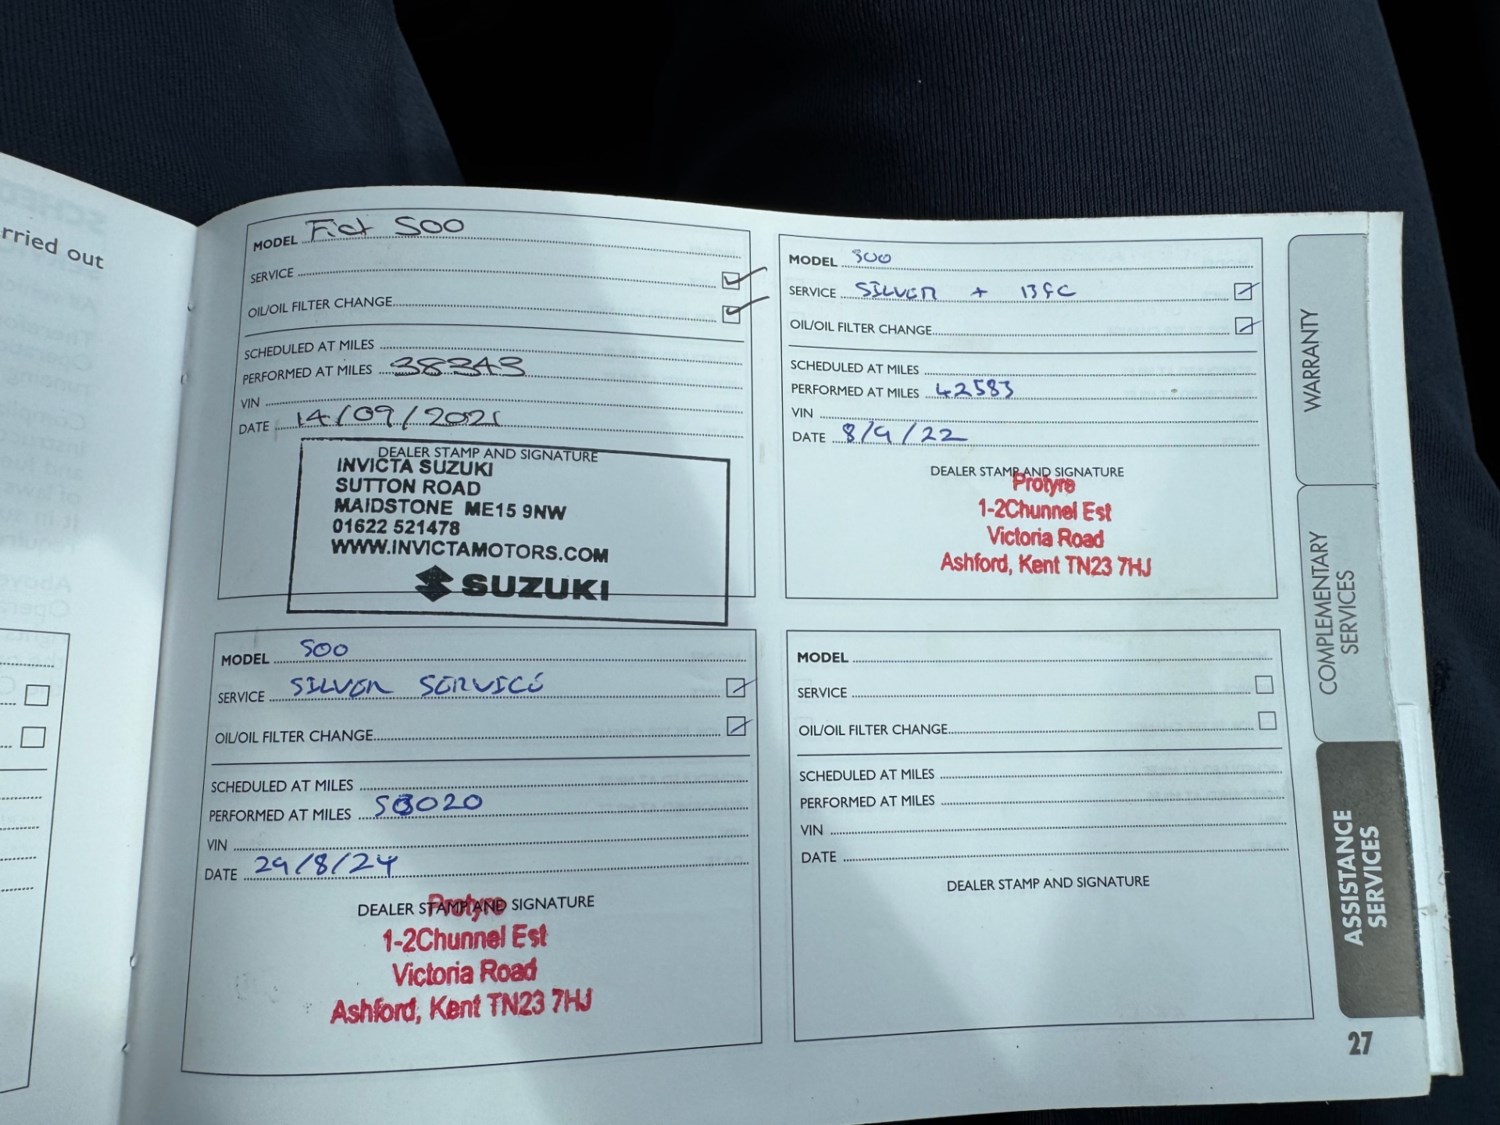 rried out
MODEL Fiat 500
SERVICE
OIL/OIL FILTER CHANGE
SCHEDULED AT MILES
PERFORMED AT MILES 38343
VIN
DATE 14/09/2021
DEALER STAMP AND SIGNATURE
INVICTA SUZUKI
SUTTON ROAD
MAIDSTONE ME15 9NW
01622 521478
WWW.INVICTAMOTORS.COM
SUZUKI
MODEL 500
SERVICE SILVER + BFC
OIL/OIL FILTER CHANGE
SCHEDULED AT MILES
PERFORMED AT MILES 42583
VIN
DATE 8/9/22
DEALER STAMP AND SIGNATURE
Protyre
1-2Chunnel Est
Victoria Road
Ashford, Kent TN23 7HJ
MODEL 500
SERVICE SILVER SERVICE
OIL/OIL FILTER CHANGE
SCHEDULED AT MILES
PERFORMED AT MILES
VIN
DATE 29/8/24
DEALER STAMP AND SIGNATURE
Protyre
1-2Chunnel Est
Victoria Road
Ashford, Kent TN23 7HJ
MODEL
SERVICE
OIL/OIL FILTER CHANGE
SCHEDULED AT MILES
PERFORMED AT MILES
VIN
DATE
DEALER STAMP AND SIGNATURE
WARRANTY
COMPLEMENTARY
SERVICES
ASSISTANCE
SERVICES
27